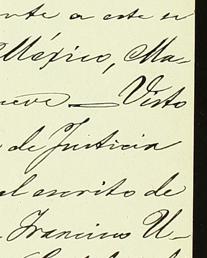 nte a este se
México, Ma-
ueve — Visto
de Justicia
el escrito de
Francisco U-